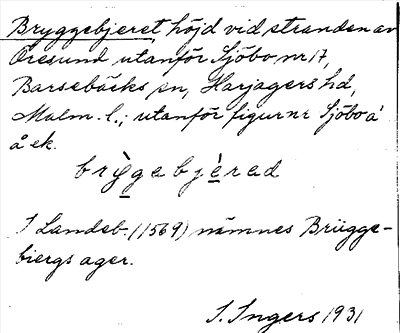 Bryggebjeret höjd vid stranden av
Öresund utanför Sjöbo nr 17,
Barsebäcks sn, Harjagers hd,
Malm. l.; utanför figur nr Sjöbo á
å ek.
brỳgebjèrad
I Landeb. (1569) nämnes Brügge-
biergs ager.
I. Ingers 1931